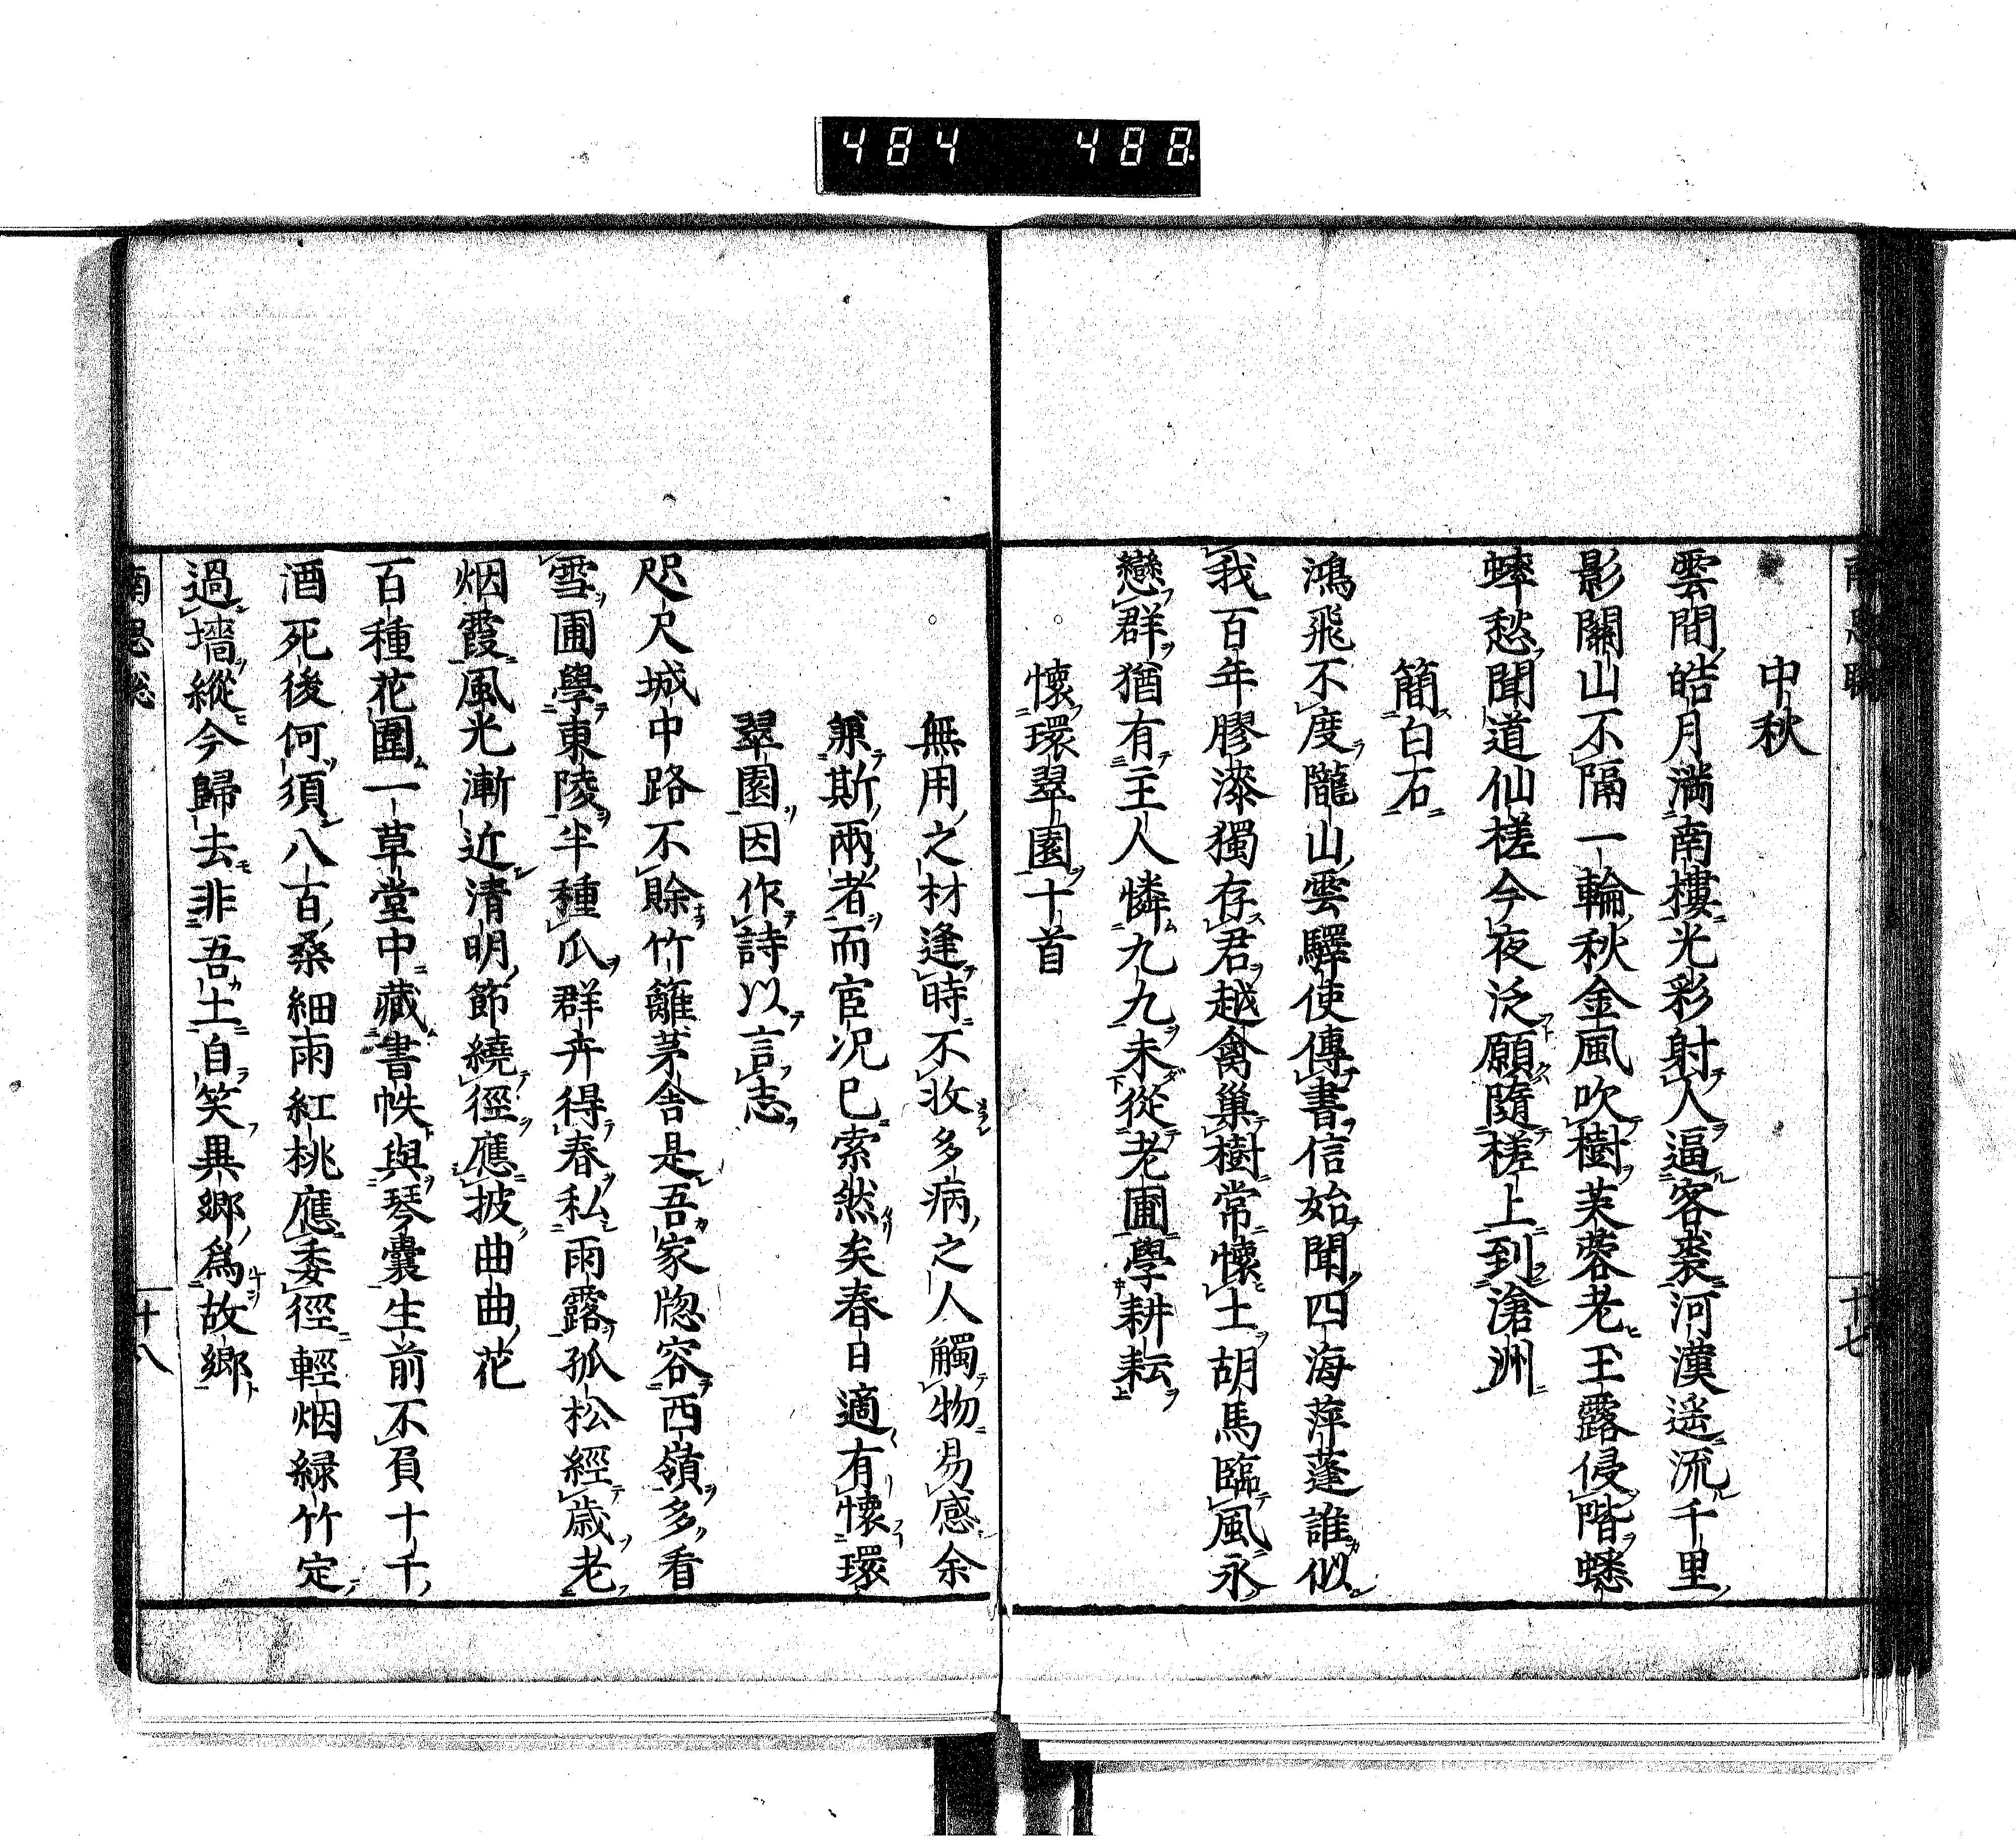 484 488
十七
中秋
雲間皓月滿南樓光彩射人逼客裘河漢遥流千里
影關山不隔一輪秋金風吹樹芙蓉老玉露侵階蟋
蟀愁聞道仙槎今夜泛願隨槎上到滄洲
簡白石
鴻飛不度隴山雲驛使傳書信始聞四海萍蓬誰似
我百年膠漆獨存君越禽巢樹常懷土胡馬臨風永
戀群猶有主人憐九九未從老圃學耕耘
懷環翠園十首
無用之材逢時不收多病之人觸物易感余
兼斯兩者而宦况已索然矣春日適有懷環
翠園因作詩以言志
咫尺城中路不賖竹籬茅舍是吾家牕容西嶺多看
雪圃學東陵半種瓜群卉得春私雨露孤松經歳老
烟霞風光漸近清明節繞徑應披曲曲花
百種花圍一草堂中藏書帙與琴囊生前不負十千
酒死後何須八百桑細雨紅桃應委徑輕烟緑竹定
過墻縱今歸去非吾土自笑異郷爲故郷
十八